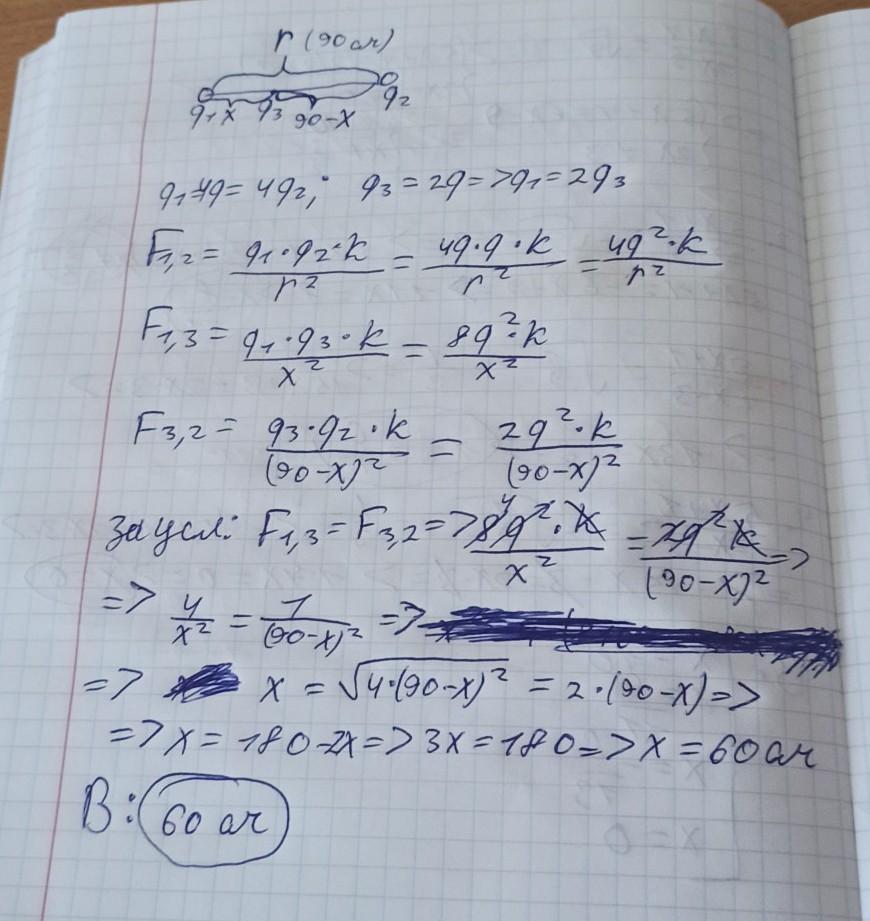 r (90 см)
q₁ x q₃ 90-x q₂
q₁=4q = 4q₂; q₃ = 2q => q₁ = 2q₃
F₁,₂ = q₁·q₂·k / r² = 4q·q·k / r² = 4q²·k / r²
F₁,₃ = q₁·q₃·k / x² = 8q²·k / x²
F₃,₂ = q₃·q₂·k / (90-x)² = 2q²·k / (90-x)²
За усл: F₁,₃ = F₃,₂ => 8q²·k / x² = 2q²k / (90-x)² =>
=> 4 / x² = 1 / (90-x)² =>
=> x = √4·(90-x)² = 2·(90-x) =>
=> x = 180-2x => 3x = 180 => x = 60 см
В: 60 см